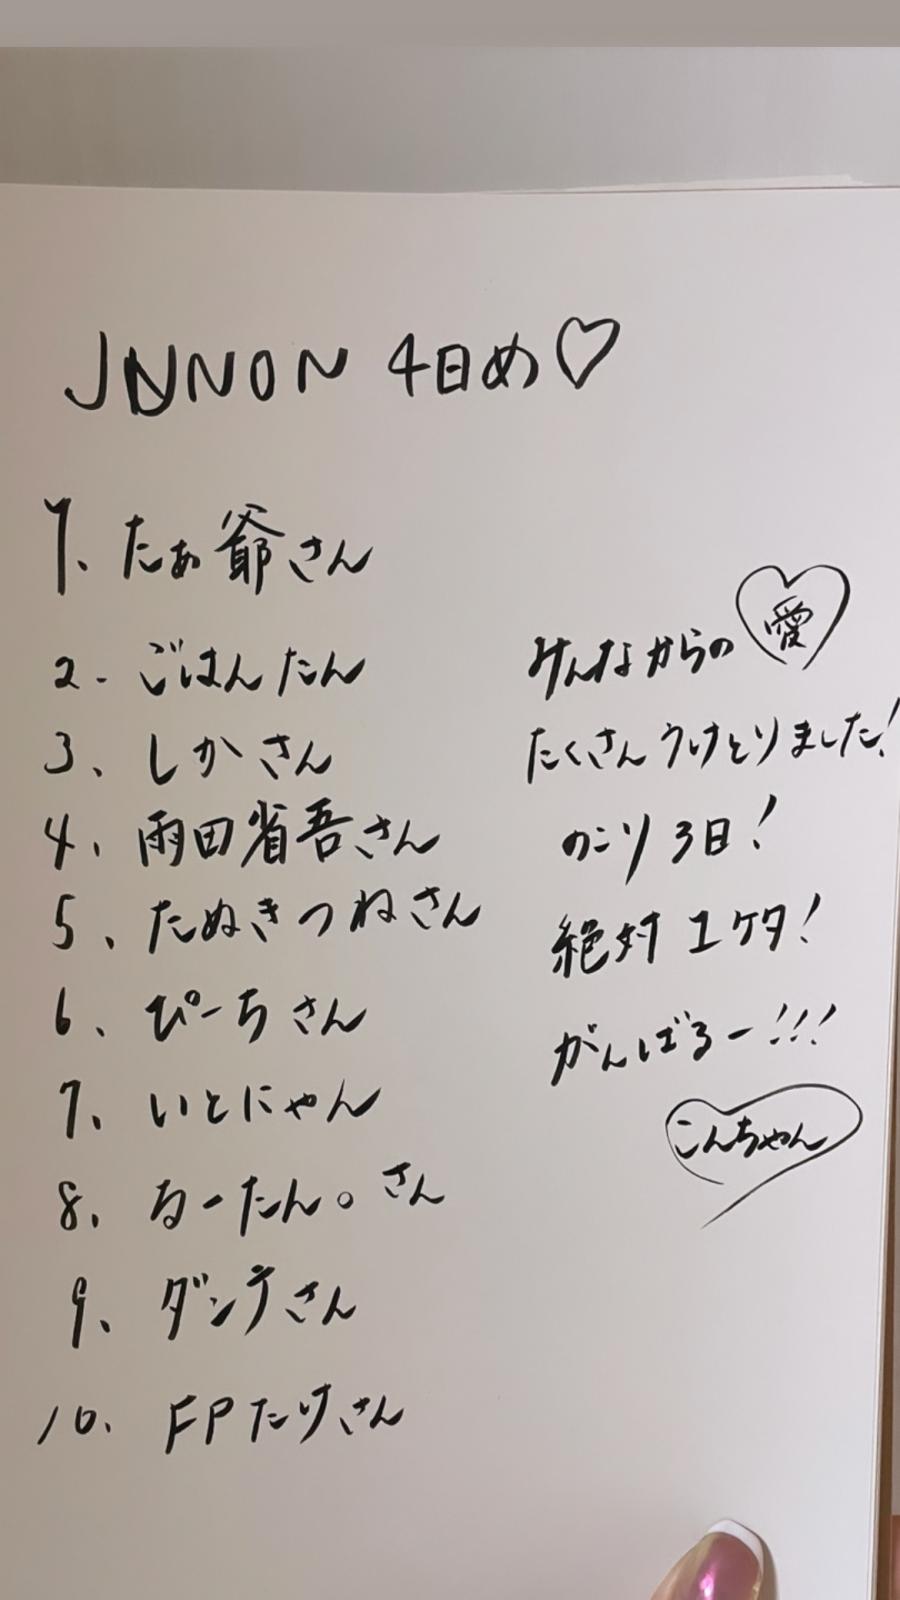 JUNON 4日め♡
1、たぁ爺さん
2-ごはんたん
3、しかさん
4、雨田省吾さん
5、たぬきつねさん
6、ぴーちさん
7、いとにゃん
8、るーたん。さん
9、ダンテさん
10、FPたけさん
みんなからの愛
たくさんうけとりました!
のこり3日!
絶対1ケタ!
がんばるー!!!
こんちゃん